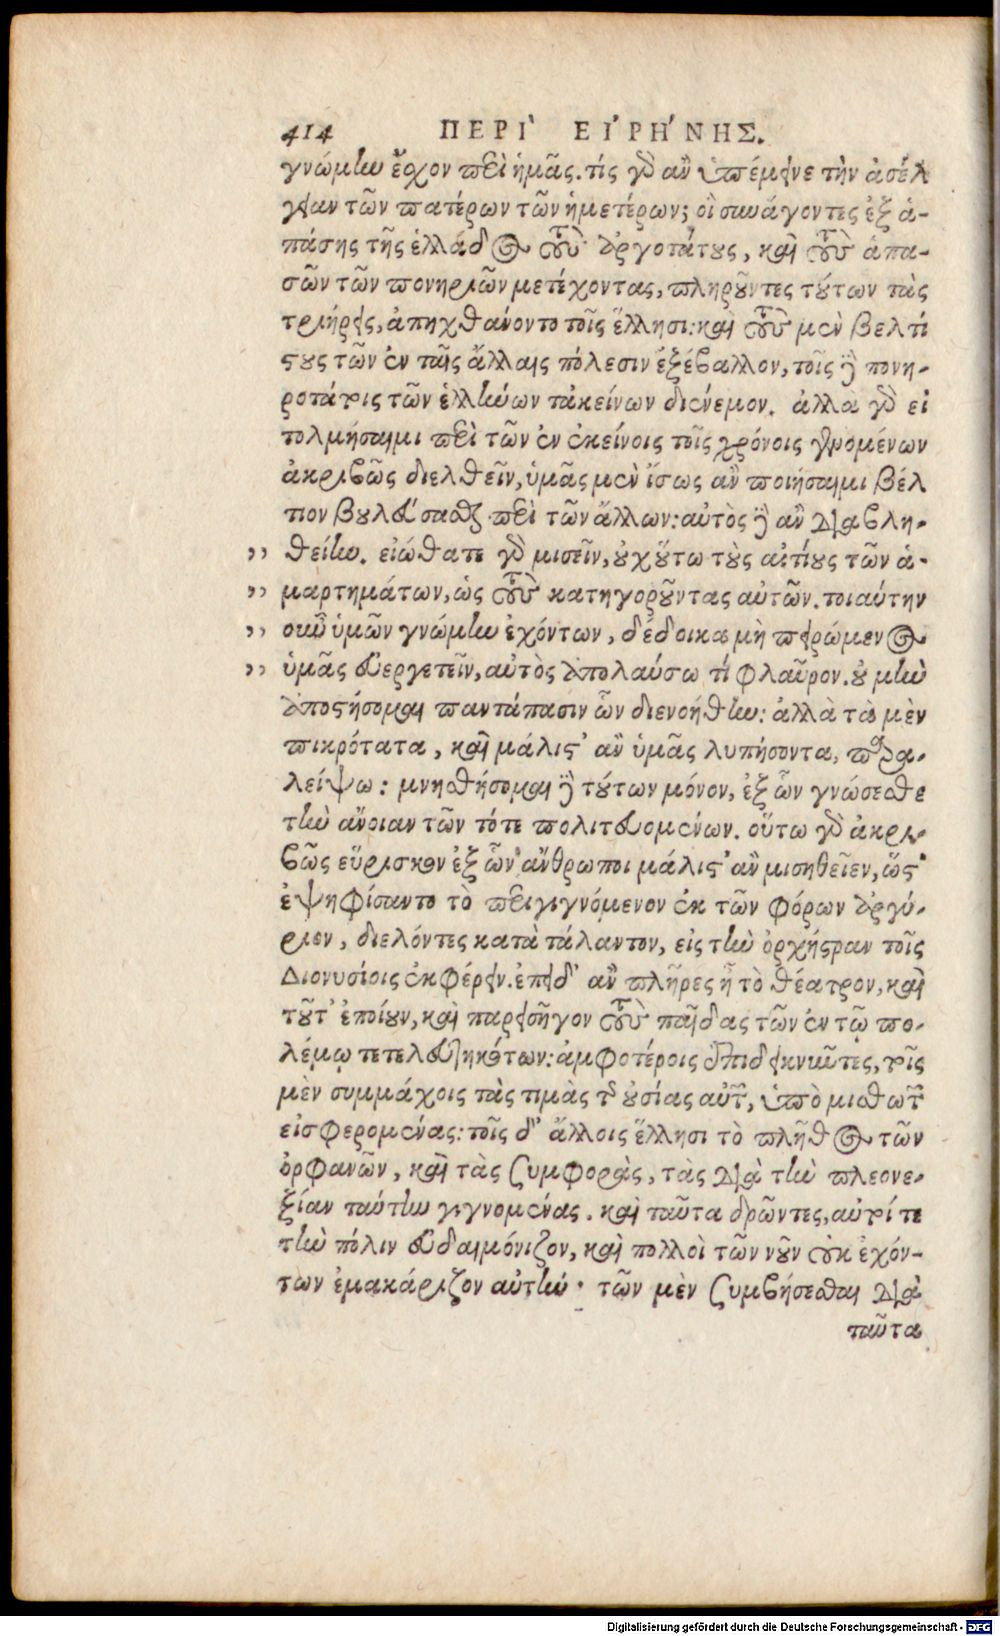 414 ΠΕΡΙ` ΕΙ᾿ΡΗ´ΝΗΣ.
γνώμην ἔσχον περὶ ἡμᾶς. τίς γὰρ ἂν ὑπέμεινε τὴν ἀσέλ
γειαν τῶν πατέρων τῶν ἡμετέρων; οἳ συνάγοντες ἐξ ἁ-
πάσης τῆς ἑλλάδος τοὺς ἀργοτάτους, καὶ τοὺς ἁπα-
σῶν τῶν πονηριῶν μετέχοντας, πληροῦντες τούτων τὰς
τριήρεις, ἀπηχθάνοντο τοῖς ἕλλησι: καὶ τοὺς μὲν βελτί
στους τῶν ἐν ταῖς ἄλλαις πόλεσιν ἐξέβαλλον, τοῖς δὲ πονη-
ροτάτοις τῶν ἑλλήνων τἀκείνων διένεμον. ἀλλὰ γὰρ εἰ
τολμήσαιμι περὶ τῶν ἐν ἐκείνοις τοῖς χρόνοις γενομένων
ἀκριβῶς διελθεῖν, ὑμᾶς μὲν ἴσως ἂν ποιήσαιμι βέλ
τιον βουλεύσασθαι περὶ τῶν ἄλλων: αὐτὸς δὲ ἂν διαβλη-
,, θείην. εἰώθατε γὰρ μισεῖν, οὐχ οὕτω τοὺς αἰτίους τῶν ἁ-
,, μαρτημάτων, ὡς τοὺς κατηγοροῦντας αὐτῶν. τοιαύτην
,, οὖν ὑμῶν γνώμην ἐχόντων, δέδοικα μὴ πειρώμενος
,, ὑμᾶς εὐεργετεῖν, αὐτὸς ἀπολαύσω τί φλαῦρον. οὐ μὴν
ἀποστήσομαι παντάπασιν ὧν διενοήθην: ἀλλὰ τὰ μὲν
πικρότατα, καὶ μάλιστ' ἂν ὑμᾶς λυπήσοντα, παρα-
λείψω: μνησθήσομαι δὲ τούτων μόνον, ἐξ ὧν γνώσεσθε
τὴν ἄνοιαν τῶν τότε πολιτευομένων. οὕτω γὰρ ἀκρι-
βῶς εὕρισκον ἐξ ὧν ἄνθρωποι μάλιστ' ἂν μισηθεῖεν, ὥστ'
ἐψηφίσαντο τὸ περιγιγνόμενον ἐκ τῶν φόρων ἀργύ-
ριον, διελόντες κατὰ τάλαντον, εἰς τὴν ὀρχήστραν τοῖς
Διονυσίοις ἐκφέρειν. ἐπειδ' ἂν πλῆρες ἦ τὸ θέατρον, καὶ
τοῦτ' ἐποίουν, καὶ παρεισῆγον τοὺς παῖδας τῶν ἐν τῷ πο-
λέμῳ τετελευτηκότων: ἀμφοτέροις ἐπιδεικνύντες, τοῖς
μὲν συμμάχοις τὰς τιμὰς τῆς οὐσίας αὐτῶν, ὑπὸ μισθωτῶν
εἰσφερομένας: τοῖς δ' ἄλλοις ἕλλησι τὸ πλῆθος τῶν
ὀρφανῶν, καὶ τὰς συμφορὰς, τὰς διὰ τὴν πλεονε-
ξίαν ταύτην γιγνομένας. καὶ ταῦτα δρῶντες, αὐτοί τε
τὴν πόλιν εὐδαιμόνιζον, καὶ πολλοὶ τῶν νοῦν οὐκ ἐχόν-
των ἐμακάριζον αὐτήν· τῶν μὲν συμβήσεσθαι διὰ
ταῦτα
Digitalisierung gefördert durch die Deutsche Forschungsgemeinschaft - DFG